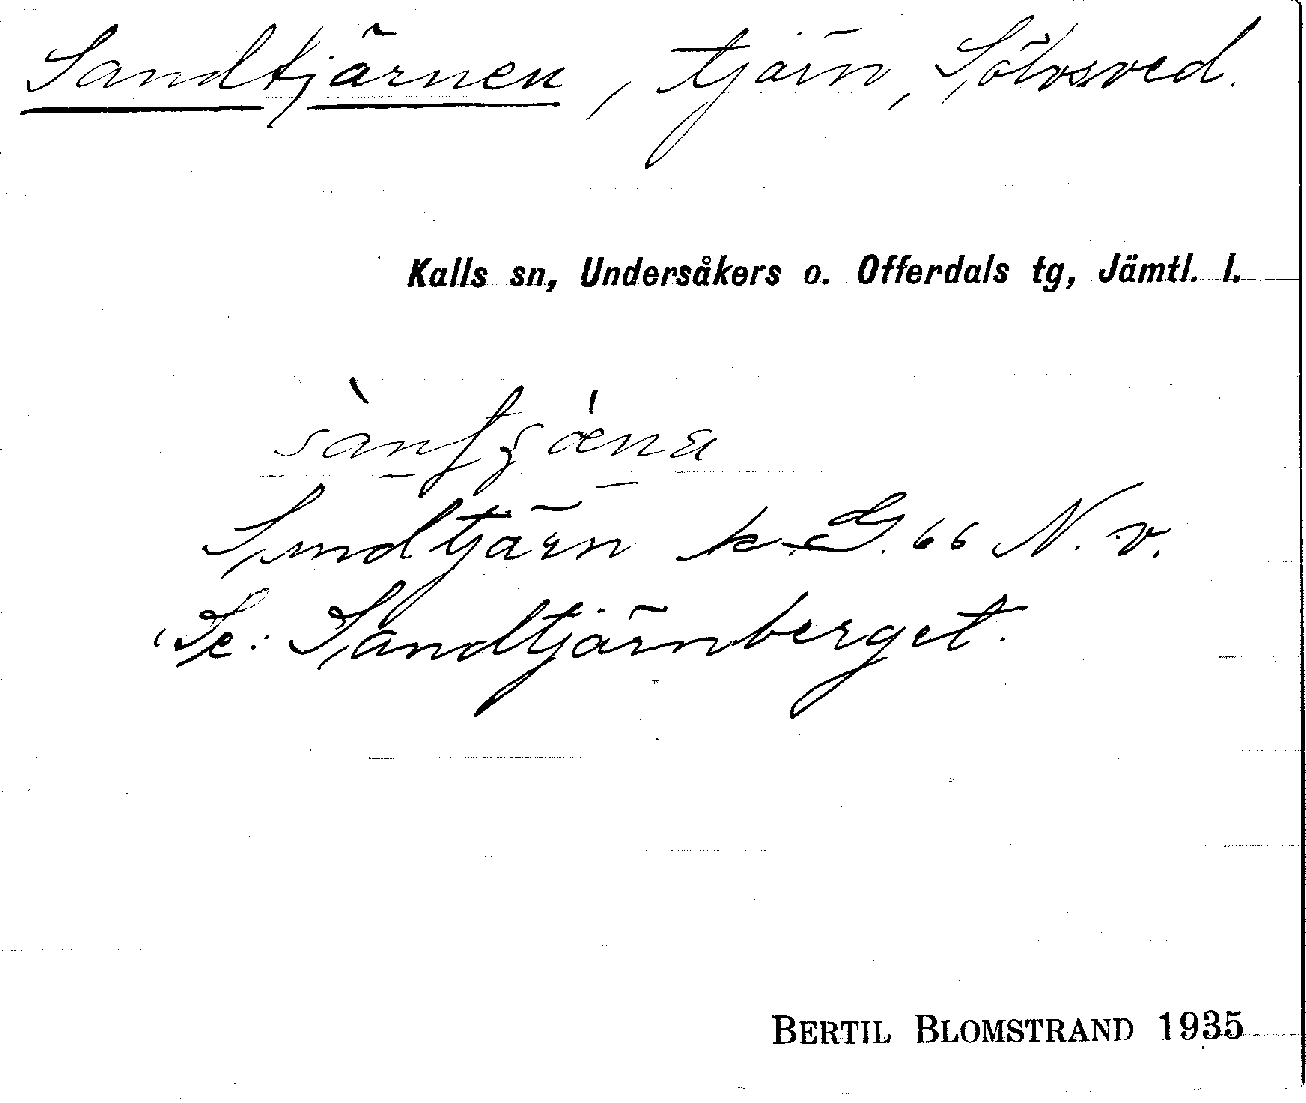 Sandtjärnen, tjärn, Sölvsved.
Kalls sn, Undersåkers o. Offerdals tg, Jämtl. l.
Sandtjärn k G. 66 N. v.
Se: Sandtjärnberget.
BERTIL BLOMSTRAND 1935